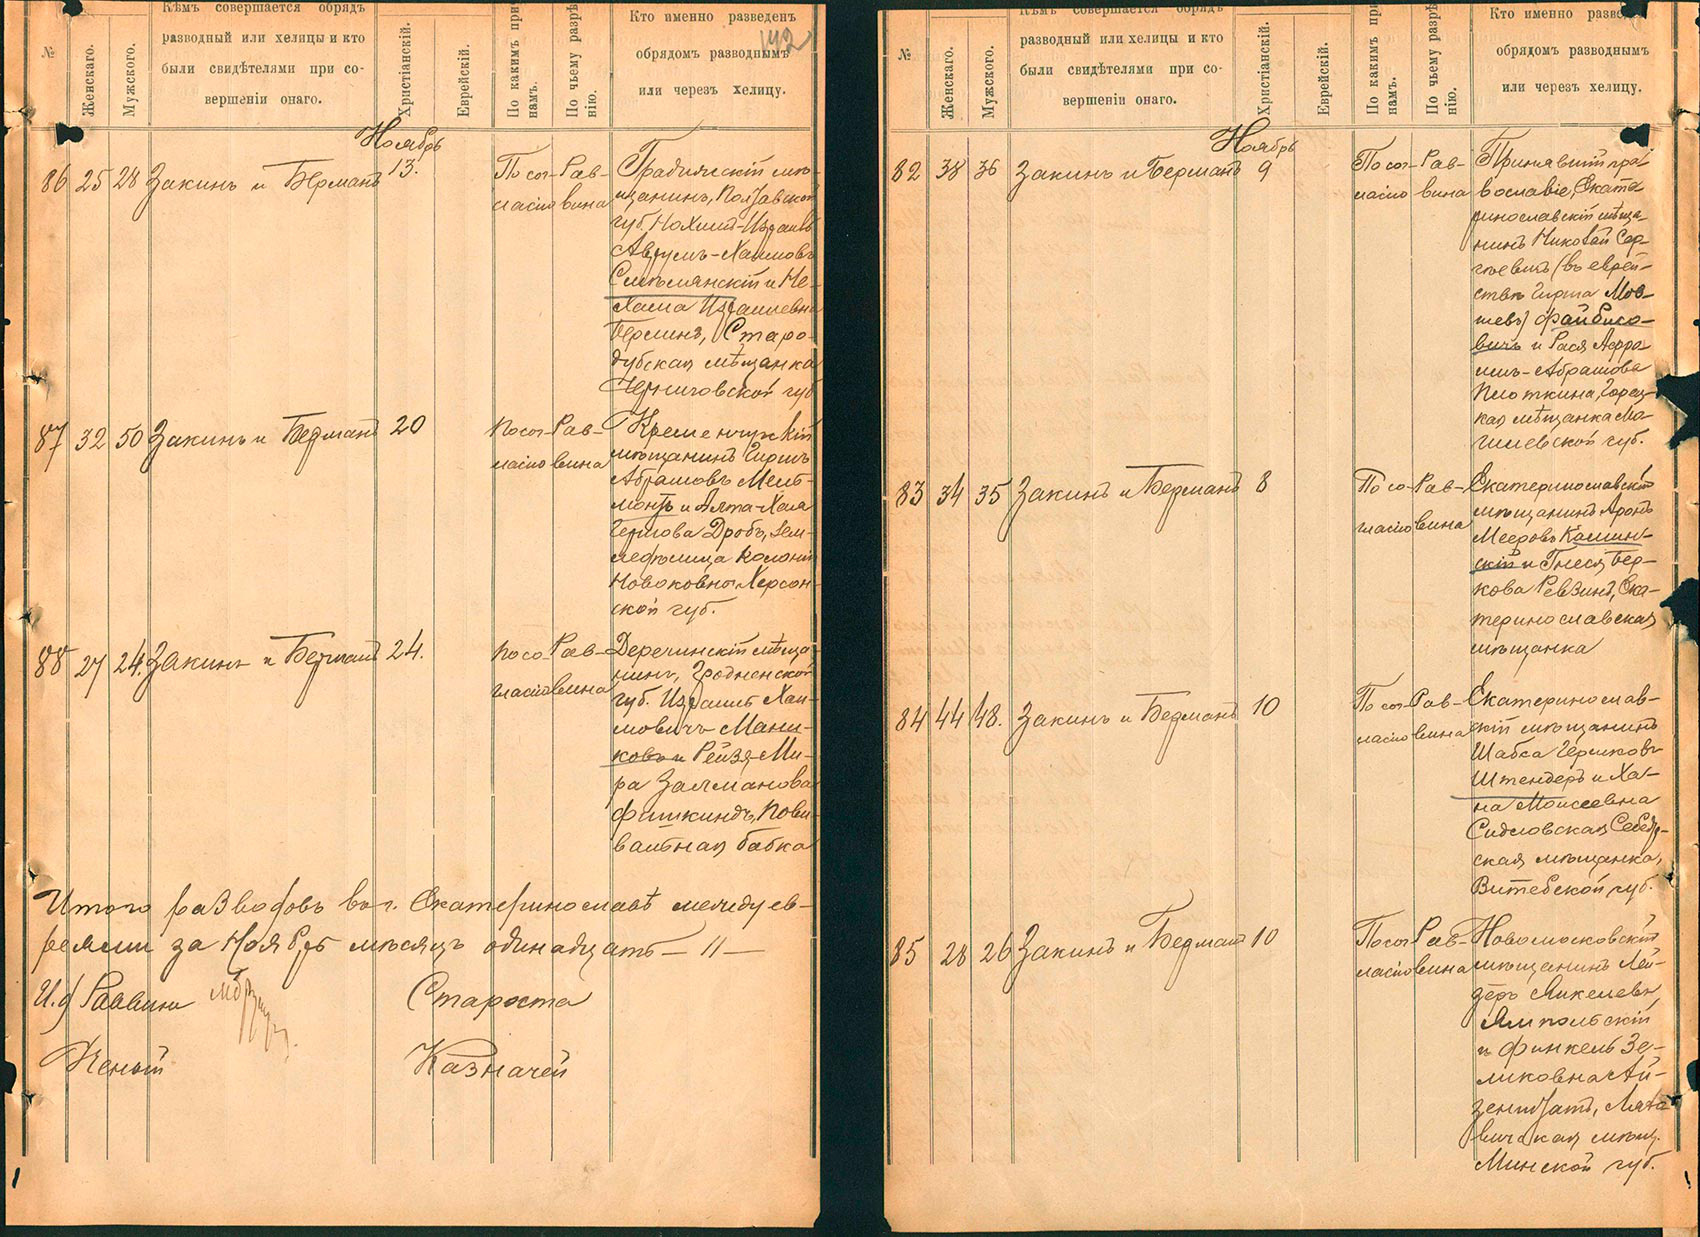 №
Женскаго.
Мужского.
Кѣмъ совершается обрядъ
разводный или хелицы и кто
были свидѣтелями при со-
вершеніи онаго.
Христіанскій.
Еврейскій.
По какимъ при
намъ.
По чьему разрѣ
нію.
Кто именно разведенъ
обрядомъ разводнымъ
или черезъ хелицу.
142
Ноябрь
86 25 28 Закинъ и Берманъ 13.
По сог-
ласію
Рав-
вина
Градижскій мѣ-
щанинъ, Полтавской
губ. Нохимъ-Израиль
Аврумъ-Хаимовъ
Смѣлянскій и Не-
хама Израилевна
Берлинъ, Старо-
дубская мѣщанка
Черниговской губ
87 32 50 Закинъ и Берманъ 20
По сог-
ласію
Рав-
вина
Кременчугскій
мѣщанинъ Гиршъ
Абрамовъ
и Алта-Хая
Дробъ, зем-
ледѣлица колоніи
Херсон-
ской губ.
88 27 24. Закинъ и Берманъ 24.
По со-
гласію
Рав-
вина
Деречинскій мѣща-
нинъ, Гродненской
губ. Израиль Хаи-
мовичъ Мани-
ковъ и Рейзя-Ми-
ра Залманова
Фишкиндъ, Пови-
вальная бабка
Итого разводовъ в г. Екатеринославѣ между ев-
реями за Ноябрь мѣсяцъ одинадцать — 11 —
И. д Раввина
Староста
Ученый
Казначей
№
Женскаго.
Мужского.
Кѣмъ совершается обрядъ
разводный или хелицы и кто
были свидѣтелями при со-
вершеніи онаго.
Христіанскій.
Еврейскій.
По какимъ при
намъ.
По чьему разрѣ
нію.
Кто именно разведе
обрядомъ разводнымъ
или черезъ хелицу.
Ноябрь
82 38 36 Закинъ и Берманъ 9
По сог-
ласію
Рав-
вина
Принявшій пра-
вославіе, Екате
ринославскій мѣща-
нинъ Николай Сер-
гѣевичъ (въ еврей-
ствѣ Гирша Мов-
шевъ) Файбисо-
вичъ и Рася Лефро-
имъ-Абрамова
Плоткина, Горец-
кая мѣщанка Мо-
гилевской губ.
83 34 35 Закинъ и Берманъ 8
По со-
гласію
Рав-
вина
Екатеринославскій
мѣщанинъ Аронъ
Мееровъ Камин-
скій и Гнеся Бер-
кова Ревзинъ, Ека-
теринославская
мѣщанка
84 44 48. Закинъ и Берманъ 10
По сог-
ласію
Рав-
вина
Екатеринослав-
скій мѣщанинъ
Шабса Гершковъ
Штендеръ и Ха-
на Моисеевна
Сидловская Себеж-
ская мѣщанка,
Витебской губ.
85 28 26 Закинъ и Берманъ 10
По сог-
ласію
Рав-
вина
Новомосковскій
мѣщанинъ Лей-
деръ Янкелевъ
Ямпольскій
и Финкель Зе-
ликовна Ай-
зенштатъ, Ляхо-
вичская мѣщ.
Минской губ.